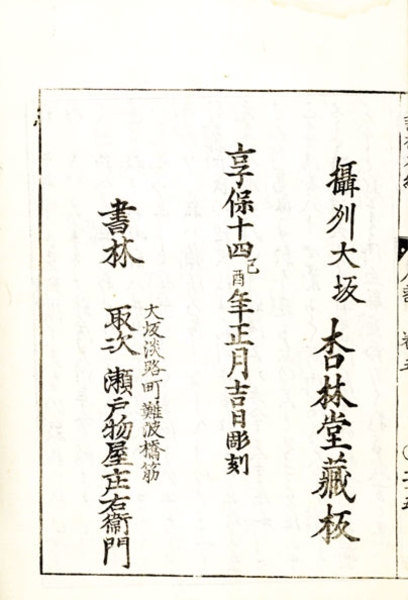 攝州大坂 杏林堂藏板
享保十四己酉年正月吉日彫刻
大坂淡路町難波橋筋
書林 取次 瀬戸物屋庄右衛門